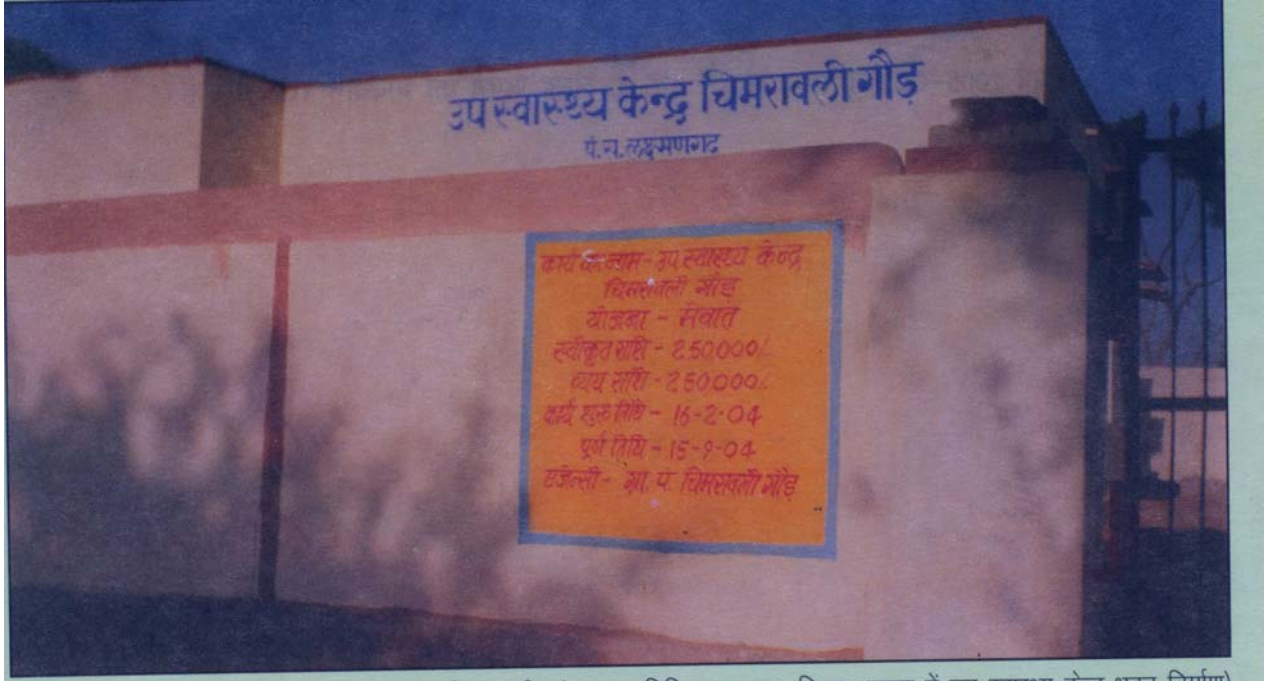 उप स्वास्थ्य केन्द्र चिमरावली गौड़
पं.स. लक्ष्मणगढ
कार्य का नाम - उप स्वास्थ्य केन्द्र
चिमरावली गौड़
योजना - मेवात
स्वीकृत राशि - 250,000/-
व्यय राशि - 250,000/-
कार्य शुरू तिथि - 16-2-04
पूर्ण तिथि - 15-9-04
एजेन्सी - ग्रा. पं. चिमरावली गौड़